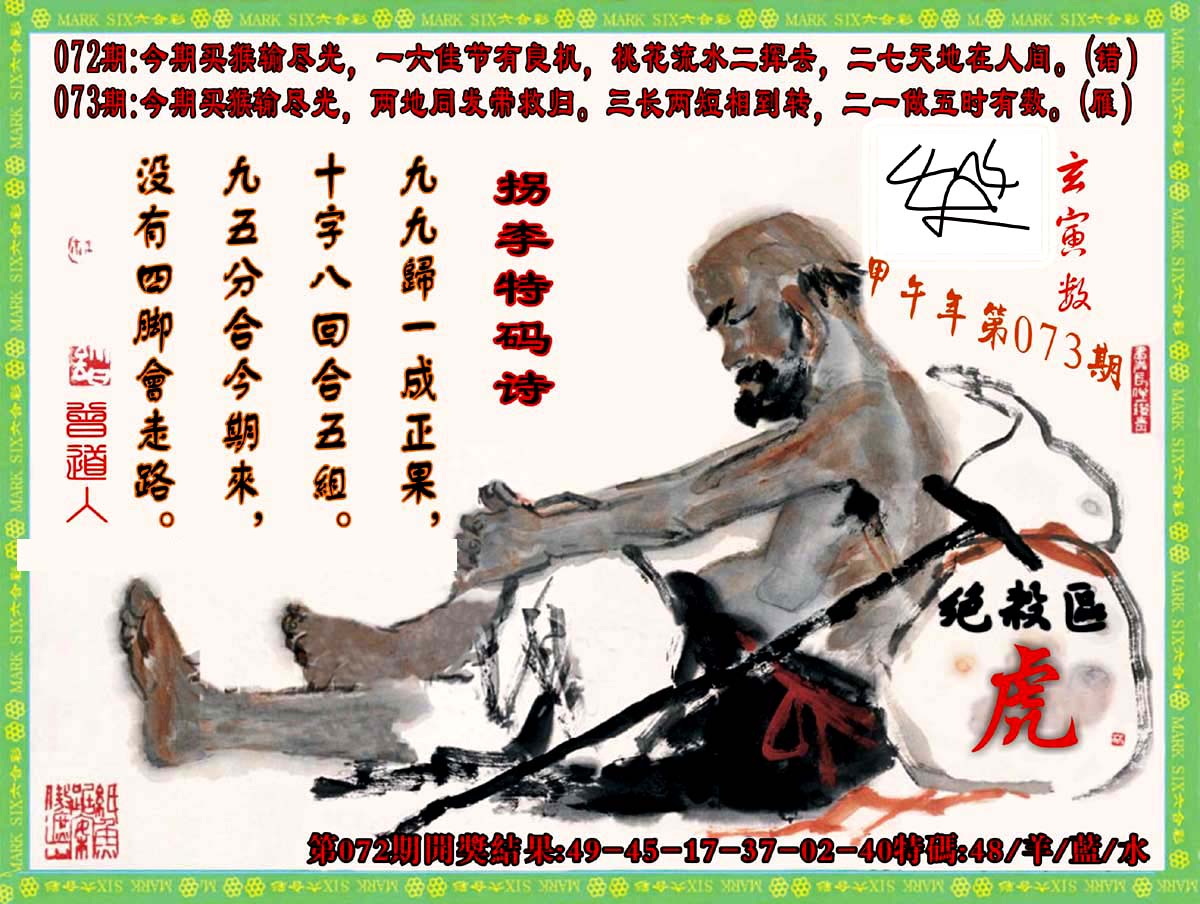 MARK SIX六合彩 MARK SIX六合彩 MARK SIX六合彩 MARK SIX六合彩 MARK SIX六合彩 MARK SIX六合彩 MARK SIX六合彩 MARK SIX六合彩
072期:今期买猴输尽光，一六佳节有良机，桃花流水二挥去，二七天地在人间。(错)
073期:今期买猴输尽光，两地同发带救归。三长两短相到转，二一做五时有数。(雁)
玄寅数
甲午年第073期
拐李特码诗
九九歸一成正果，
十字八回合五組。
九五分合今期來，
没有四脚會走路。
曾道人
绝殺區
虎
第072期開獎結果:49-45-17-37-02-40特碼:48/羊/藍/水